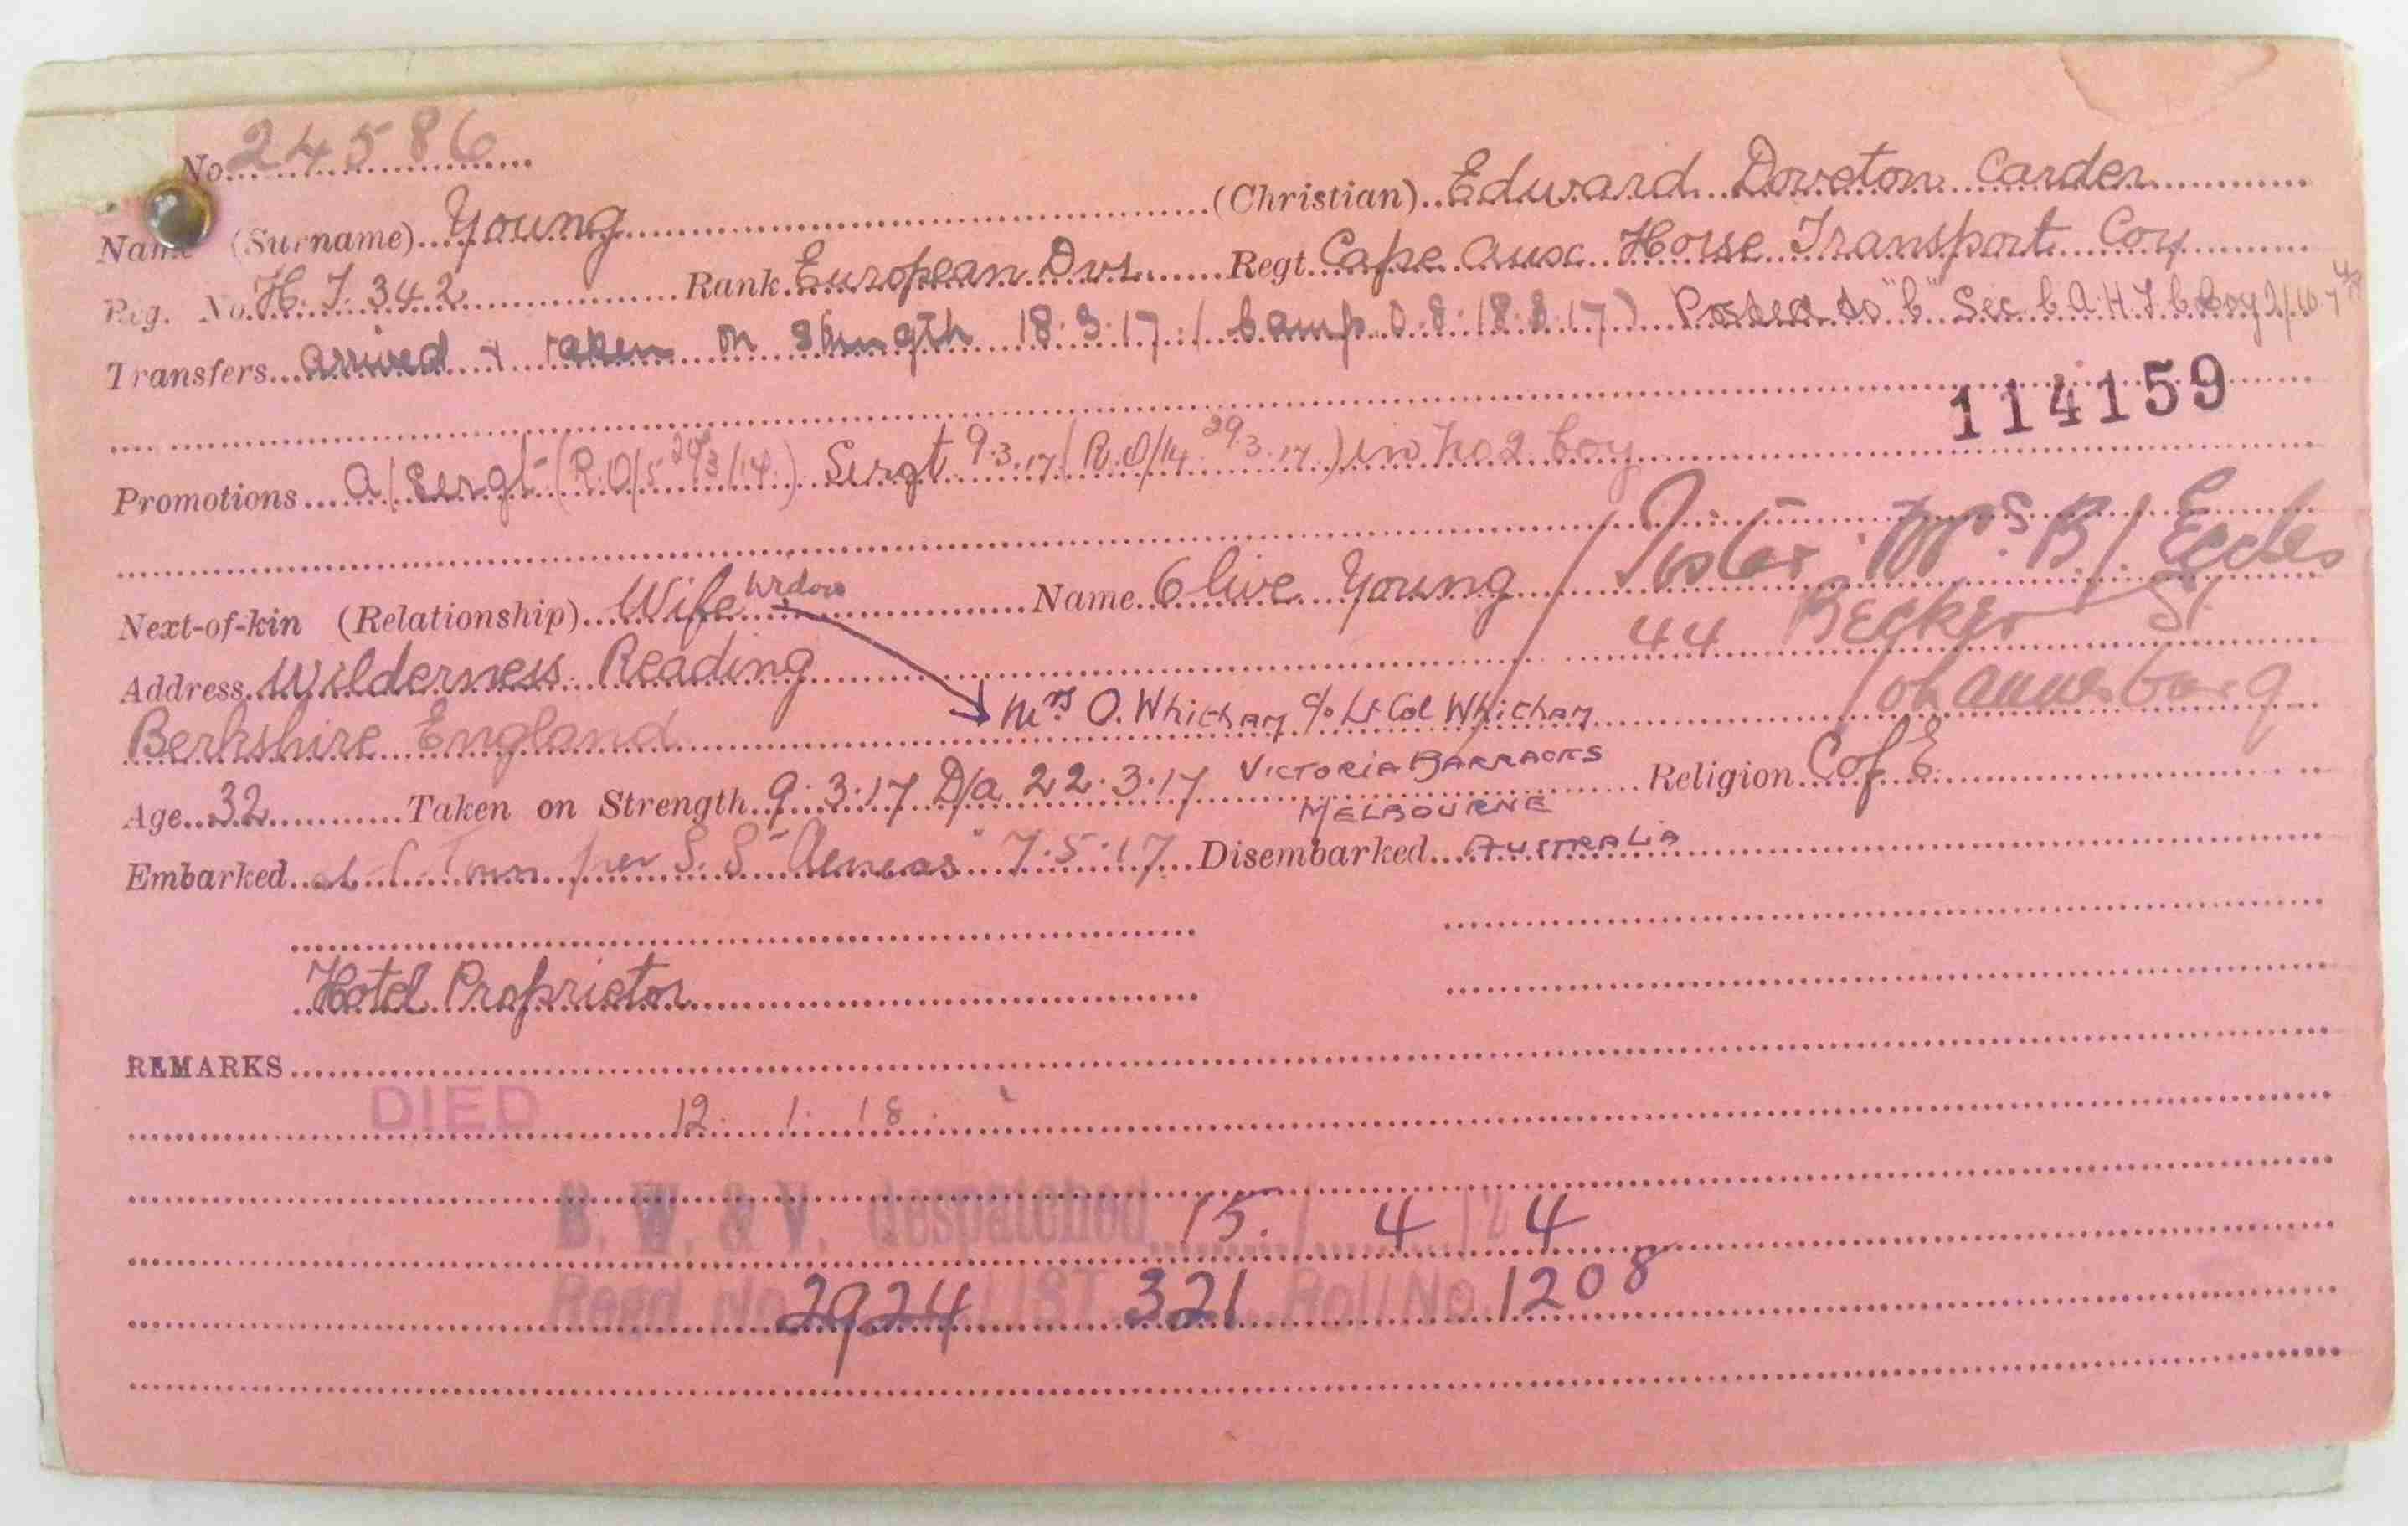 No. 24586
Name (Surname) Young (Christian) Edward Doveton Carden
Reg. No. H.T. 342 Rank European Dvr. Regt. Cape Aux. Horse Transport Coy
Transfers arrived & taken on strength 18.3.17. (Camp O.8. 18.3.17) Posted to "C" Sec C.A.H.T.C. Coy
114159
Promotions A/Sergt (R.O/5 Sergt 9.3.17 (R.O/14 29.3.17) in No 2 Coy
Next-of-kin (Relationship) Wife Widow Name Olive Young / Sister Mrs. B. Eccles
Address Wilderness Reading 44 Becker St
Berkshire England Mrs O. Whitham c/o Lt Col Whitham Johannesburg
Age 32 Taken on Strength 9.3.17 D/a 22.3.17 VICTORIA BARRACKS Religion C of E
MELBOURNE
Embarked at C. Town per S.S. Aeneas 7.5.17 Disembarked AUSTRALIA
Hotel Proprietor
REMARKS
DIED 12. 1. 18.
B. W. & V. despatched 15. / 4 / 24
Regd No 2924 LIST 321 Roll No. 1208